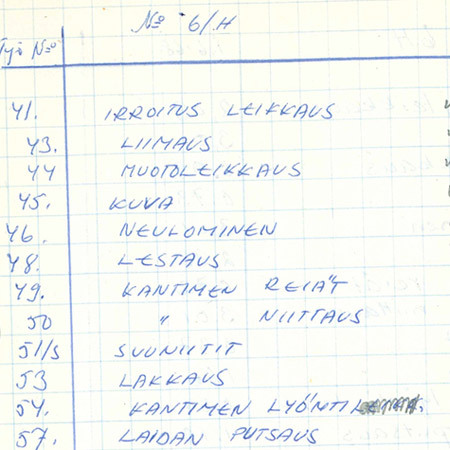 No 6/H
Työ No
41. IRROITUS LEIKKAUS
43. LIIMAUS
44 MUOTOLEIKKAUS
45. KUVA
46. NEULOMINEN
48. LESTAUS
49. KANTIMEN REIÄT
50 " NIITTAUS
51/s SUUNIITIT
53 LAKKAUS
54. KANTIMEN LYÖNTI
57. LAIDAN PUTSAUS